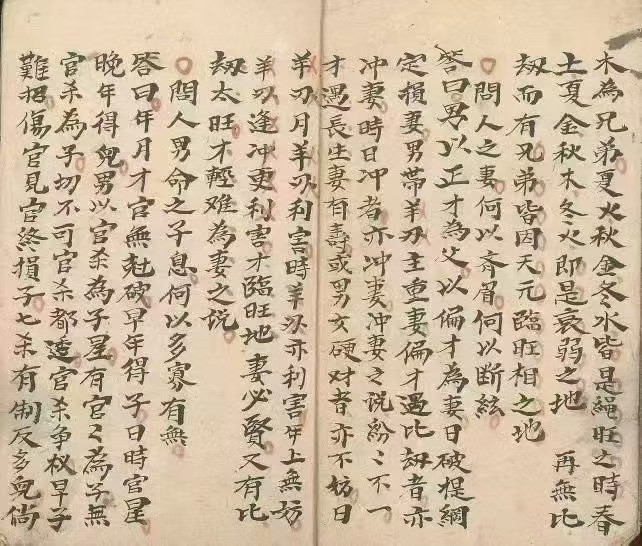 木為兄弟夏火秋金冬水皆是繩旺之時春
土夏金秋木冬火即是衰弱之地　再無比
刼而有兄弟皆因天元臨旺相之地
問人之妻何以齐眉何以断絃
答曰男以正才為父以偏才為妻日破提綱
定損妻男带羊刃主重妻偏才遇比刼者亦
冲妻時日冲者亦冲妻冲妻之说紛〻不一
才遇長生妻有壽或男女硬对者亦不妨日
羊刃月羊刃利害時羊刃亦利害年上無妨
羊刃逢冲更利害才臨旺地妻必賢又有比
刼太旺才輕难為妻之说
問人男命之子息何以多寡有無
答曰年月才官無尅破早年得子日時官星
晚年得兒男以官杀為子星有官〻為子無
官杀為子切不可官杀都透官杀争权早子
難招傷官見官终損子七杀有制反多兒倘